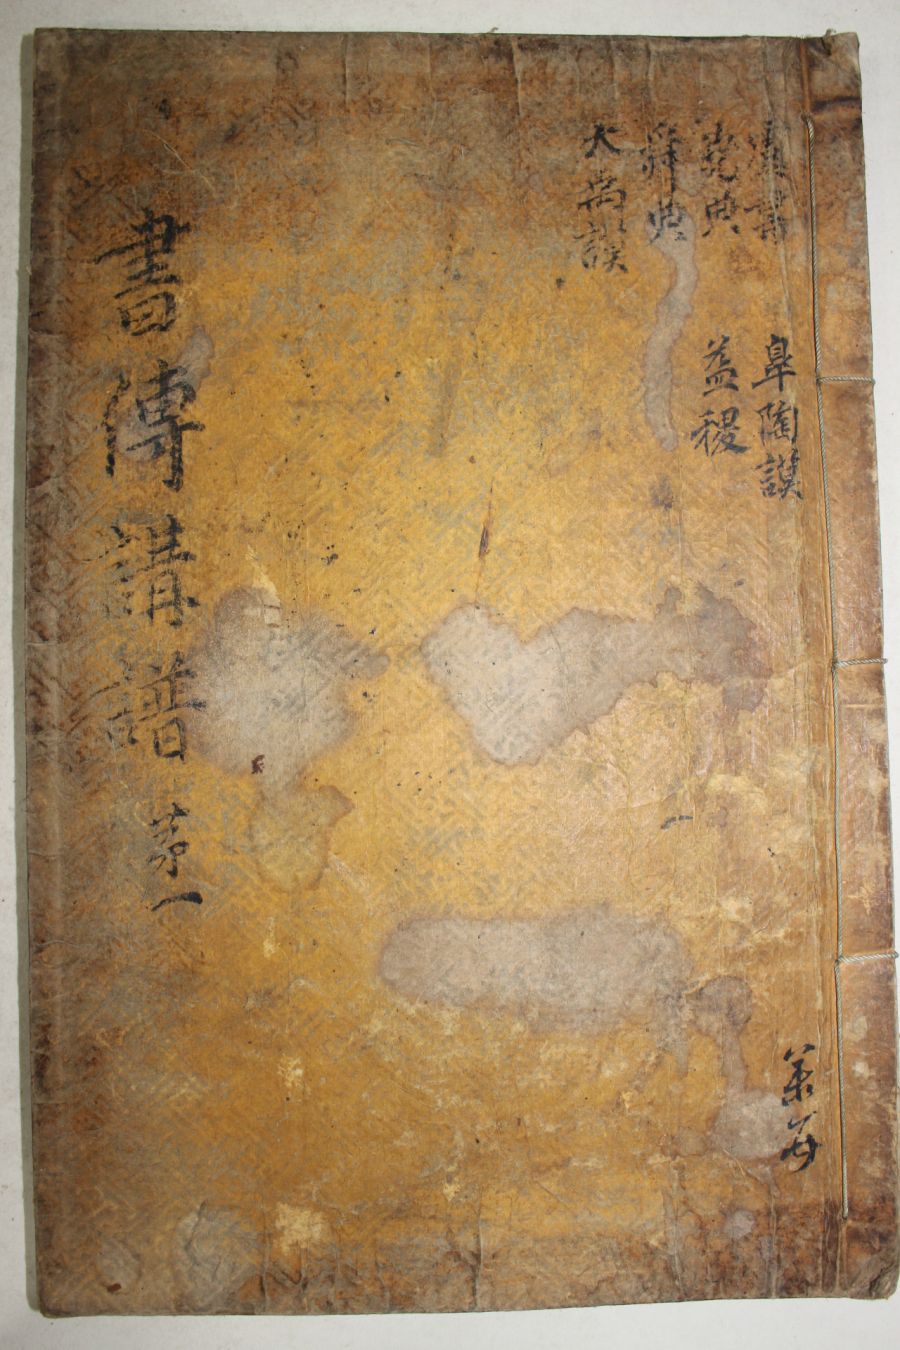 虞書
堯典
舜典
大禹謨
皐陶謨
益稷
書傳講譜 苐一